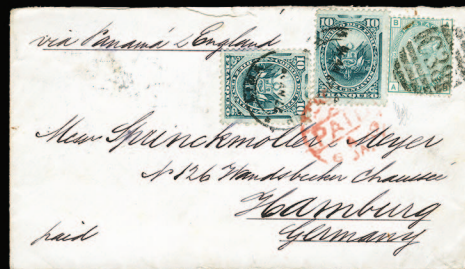 via Panamá & England
10 10
FRANQUEO
10 10
B
A
PAID
Messrs Sprinckmöller & Meyer
No 126 Wandsbecker Chaussée
Hamburg
Germany
paid